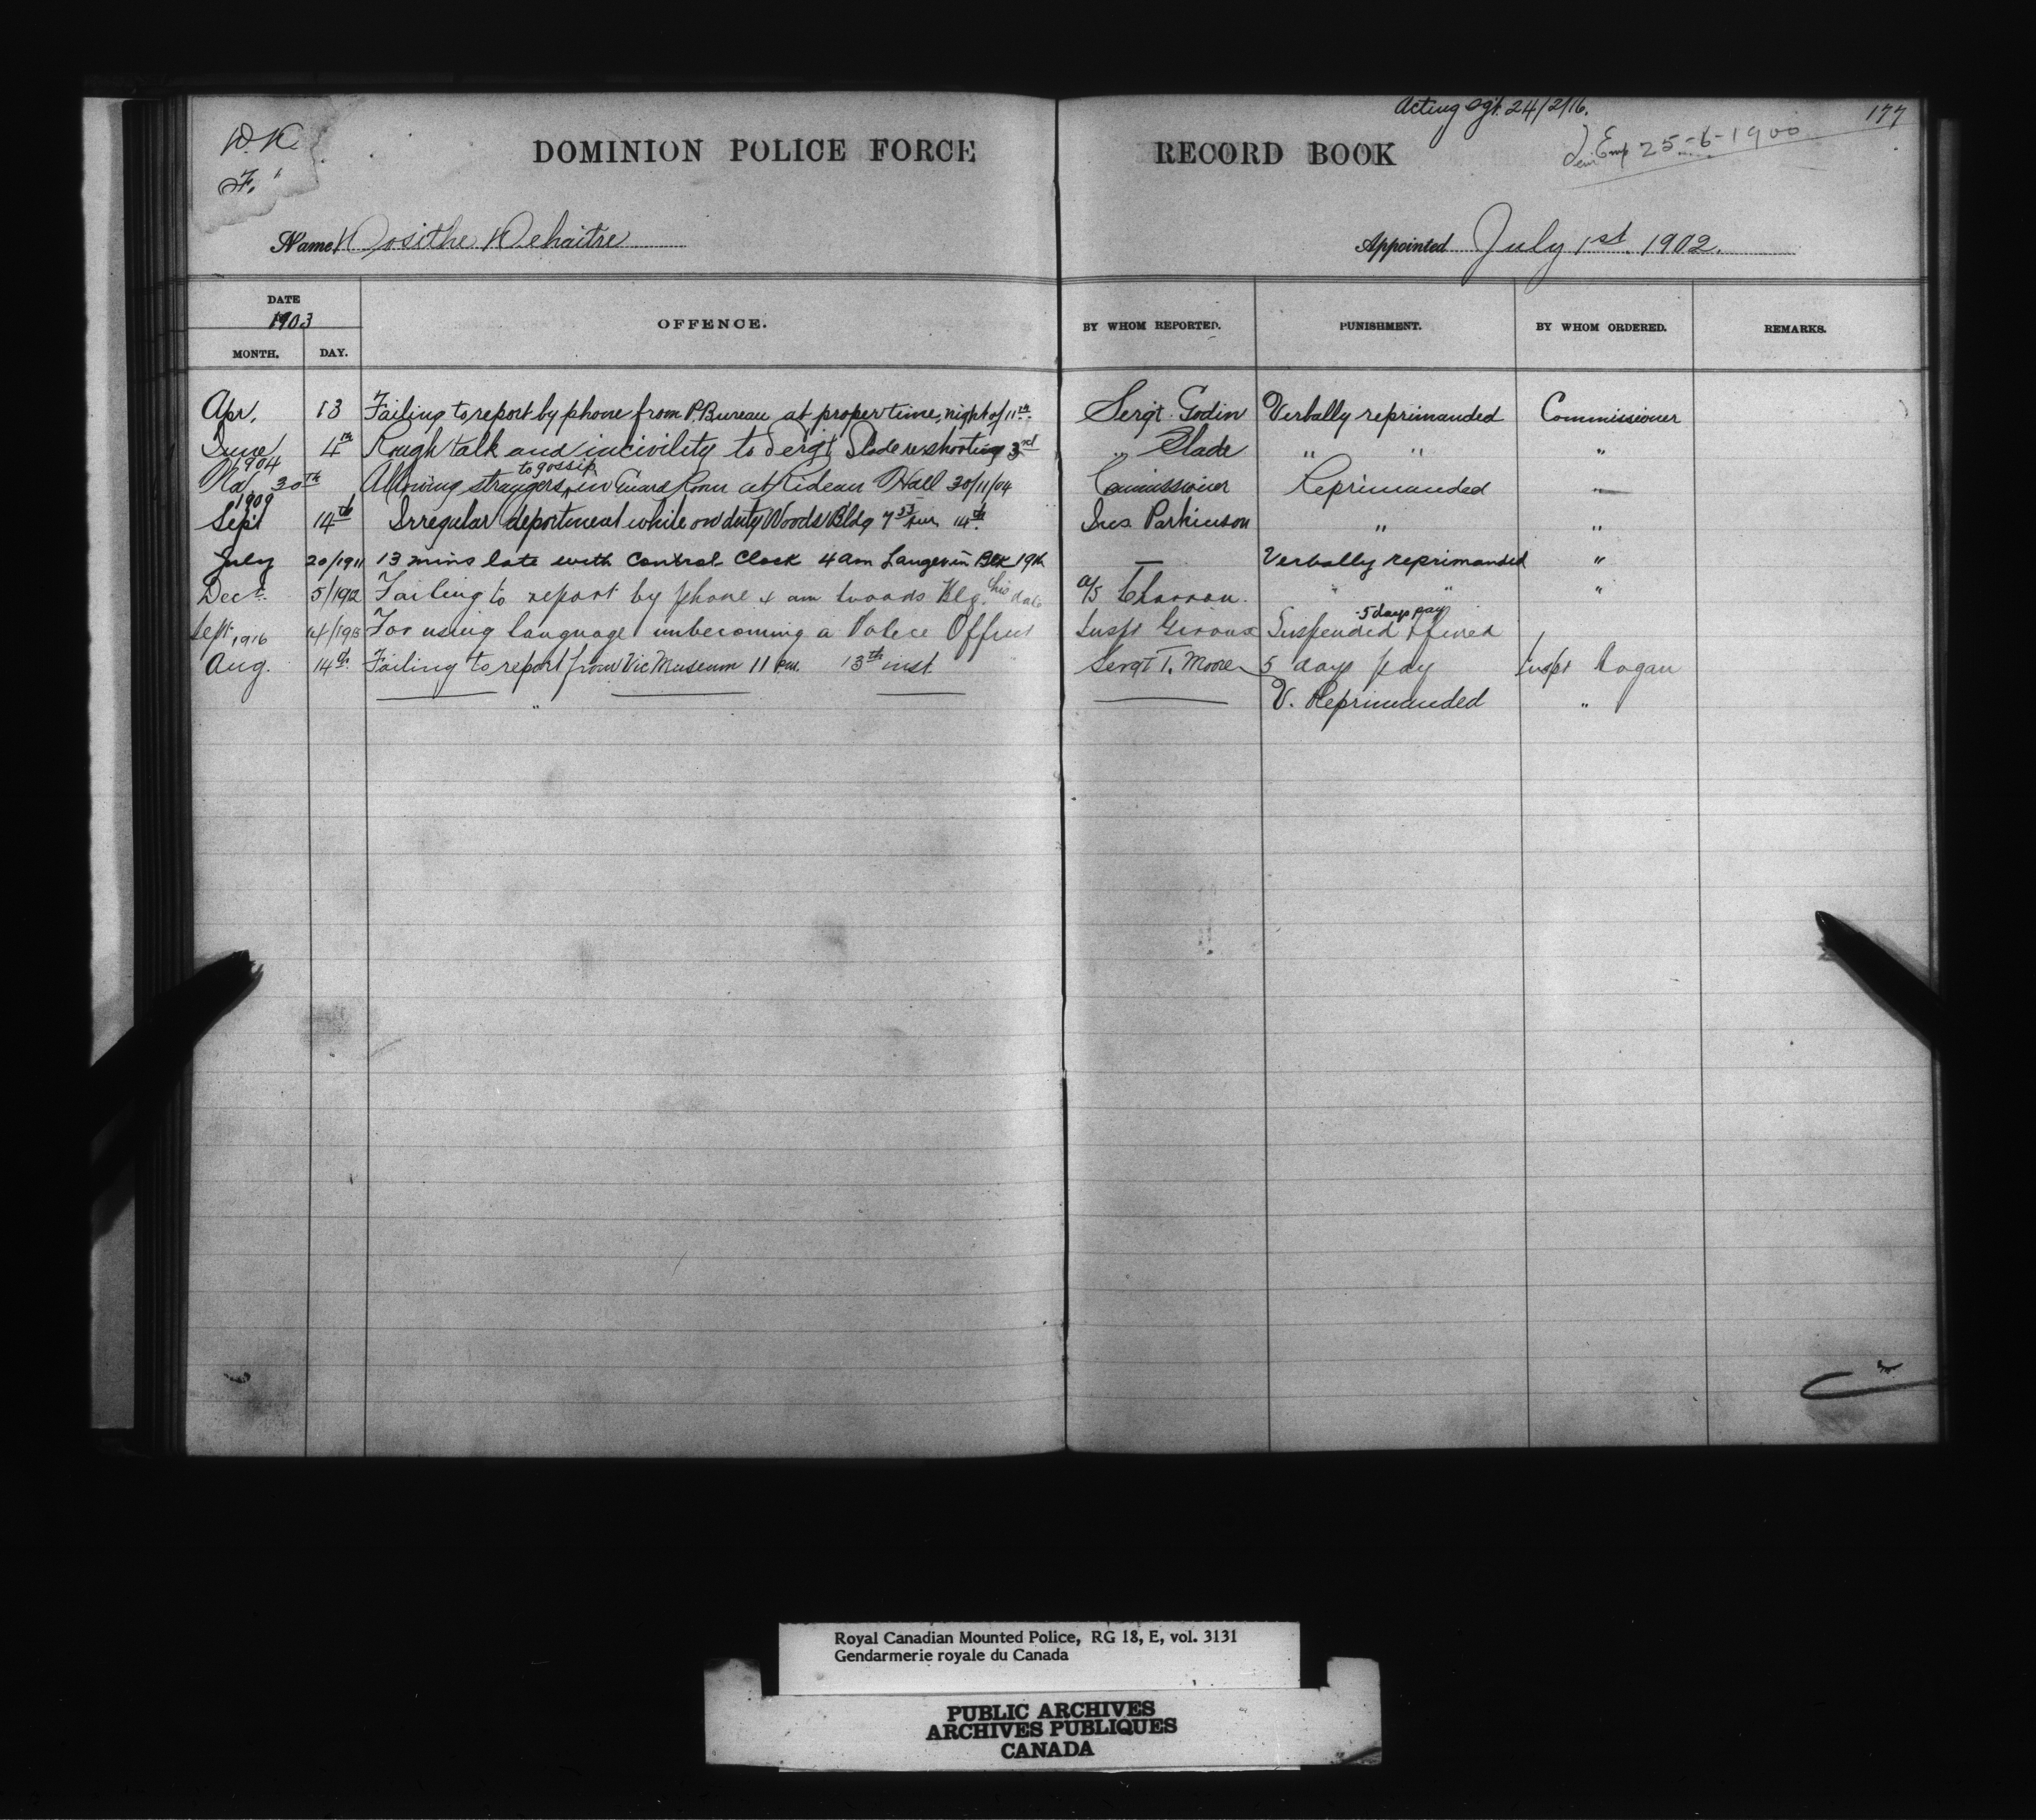 Acting Sgt. 24/2/16.
177
Emp 25-6-1900
D.K
F.
DOMINION POLICE FORCE RECORD BOOK
Name Dosithe Dehaitre Appointed July 1st 1902.
DATE 1903 MONTH. DAY. OFFENCE. BY WHOM REPORTED. PUNISHMENT. BY WHOM ORDERED. REMARKS.
Apr. 13 Failing to report by phone from P. Bureau at proper time, night of 11th. Sergt. Godin Verbally reprimanded Commissioner
June 4th Rough talk and incivility to Sergt Slade re shooting 3rd " Slade " " "
1904 to gossip
30th Allowing strangers in Guard Room at Rideau Hall 30/11/04 Commissioner Reprimanded "
1909
Sept 14th Irregular deportment while on duty Woods Bldg 14th Ins. Parkinson " "
July 20/1911 13 mins late with Control Clock 4 am Langevin Blk 19th — Verbally reprimanded "
Dec 5/192 Failing to report by phone 4 am Woods Blg. this date a/s Charron. " " "
5 days pay
Sept. 14/ For using language unbecoming a Police Officer Inspt Giroux Suspended & fined
1916
Aug. 14th Failing to report from Vic Museum 11 P.M. 13th inst Sergt T. Moore 5 days pay Inspt Hogan
" V. Reprimanded "
Royal Canadian Mounted Police, RG 18, E, vol. 3131
Gendarmerie royale du Canada
PUBLIC ARCHIVES
ARCHIVES PUBLIQUES
CANADA